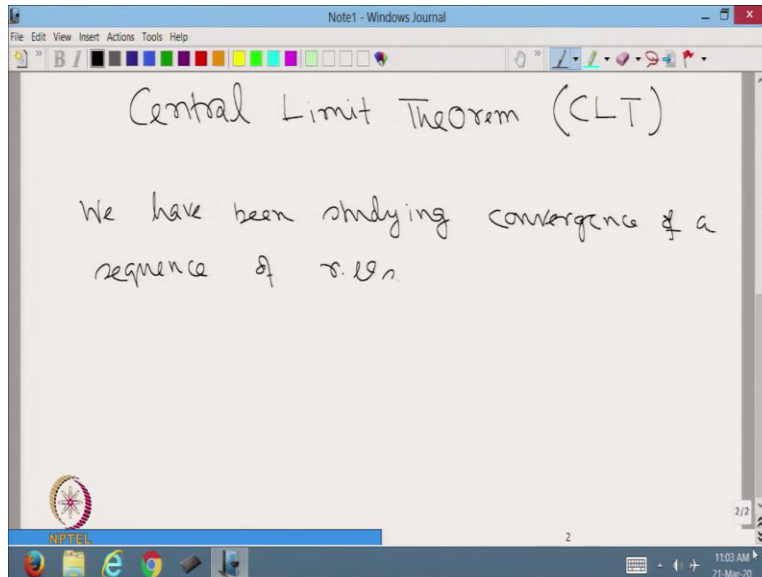 Note1 - Windows Journal
File Edit View Insert Actions Tools Help
B I
Central Limit Theorem (CLT)
We have been studying convergence of a
sequence of r.vs.
2/2
NPTEL
2
11:03 AM
21-Mar-20